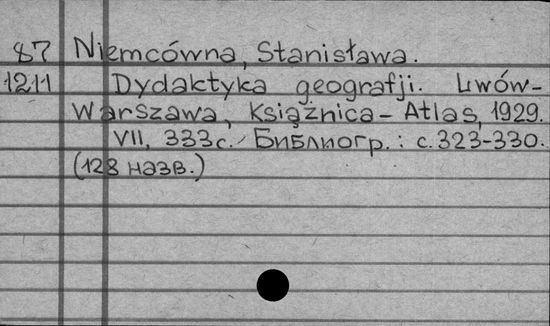 87 Niemcówna, Stanisława.
1211 Dydaktyka geografji. Lwów-
Warszawa, Książnica-Atlas, 1929.
VII, 333 с. Библиогр.: с. 323-330.
(128 назв.)